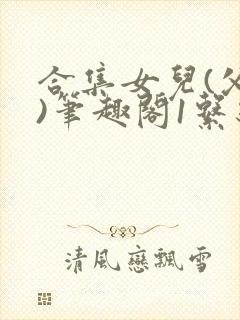 合集女兒(父
)筆趣閣1繫
清風戀飄雪